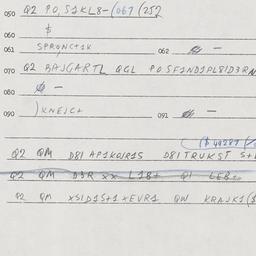 050 Q2 PO, S1KL8-(067 (252
$
060
061 SPRONC+1K 062 —
070 Q2 BAJGARTL QGL POSF1ND1PL81D3RN
080 $ —
090 )KNEJC+ 091 —
($ 49287
Q2 QM D81 AP1KQJR1S D81TRUKST S+
Q2 QM D3R XX L18+ Q1 LE8
Q2 QM XS1D1S+1 XEVR1 QW KRAJK1($